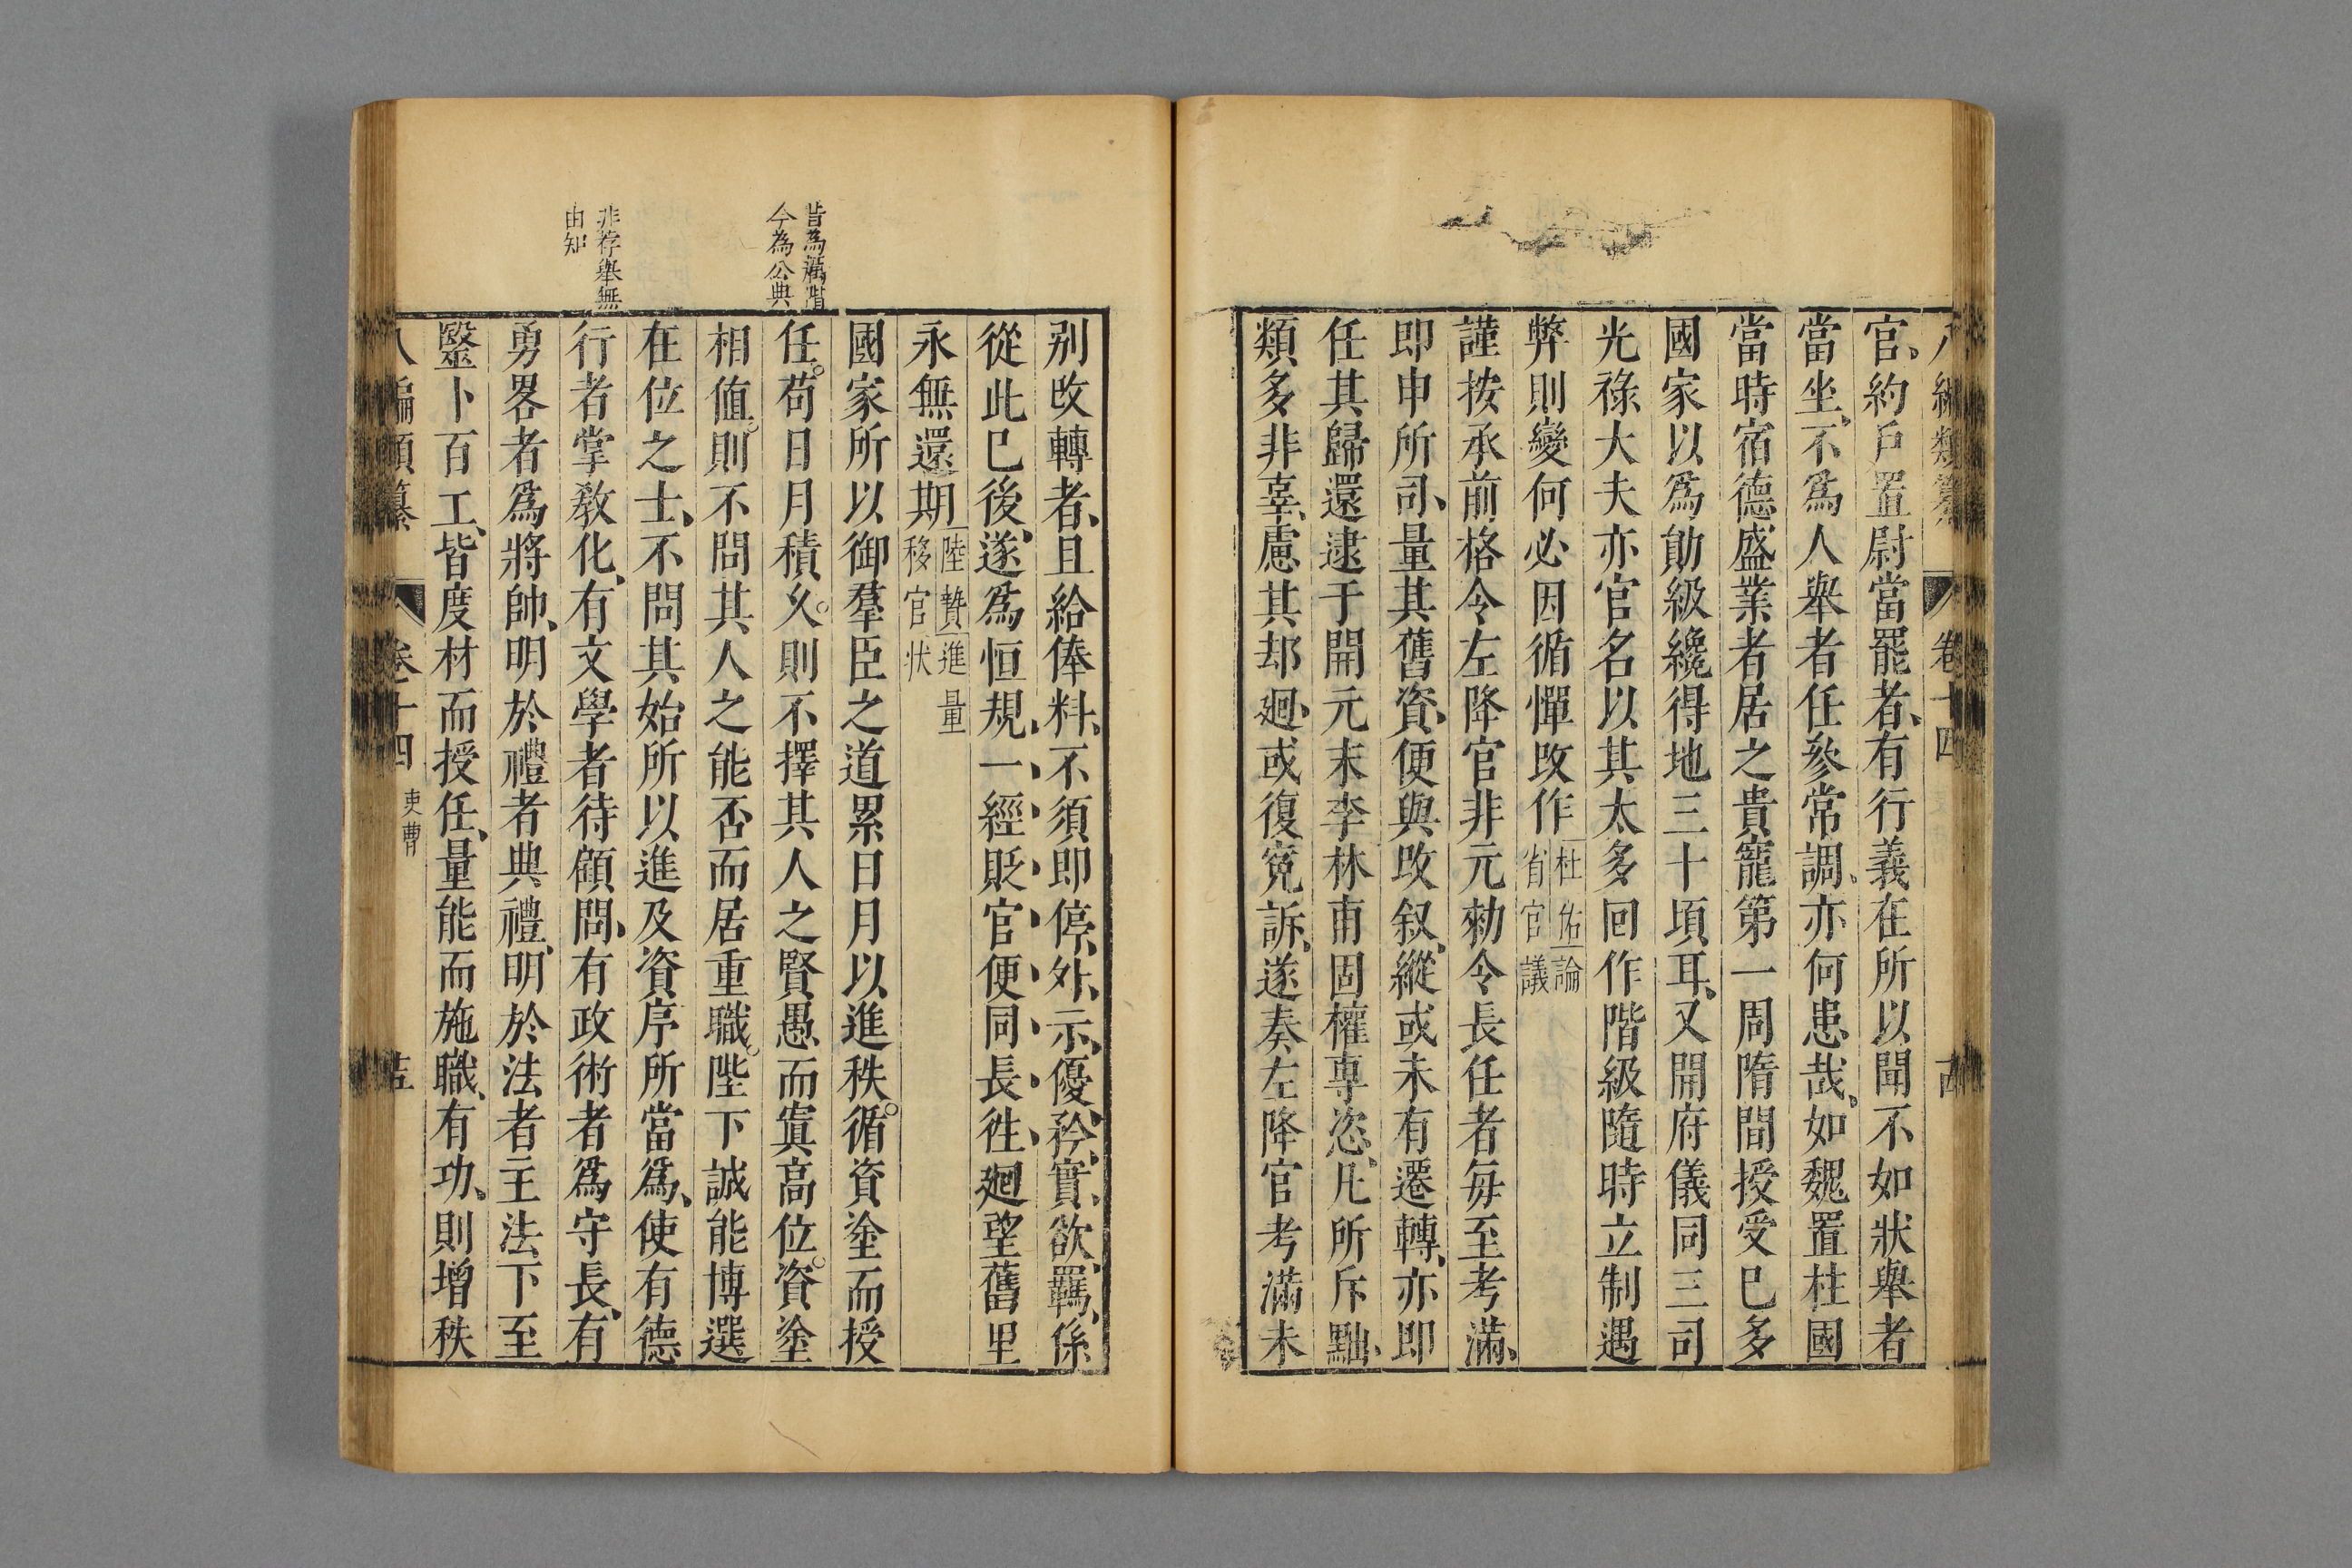 八編類纂 卷十四
官約戶置尉當罷者有行義在所以聞不如狀舉者
當坐不爲人舉者任參常調亦何患哉如魏置柱國
當時宿德盛業者居之貴寵第一周隋間授受已多
國家以爲勛級纔得地三十頃耳又開府儀同三司
光祿大夫亦官名以其太多回作階級隨時立制遇
弊則變何必因循憚改作杜佑論省官議
謹按承前格令左降官非元勑令長任者每至考滿
即申所司量其舊資便與改叙縱或未有遷轉亦即
任其歸還逮于開元末李林甫固權專恣凡所斥黜
類多非辜慮其却廻或復寃訴遂奏左降官考滿未
别改轉者且給俸料不須即停外示優矜實欲羈係
從此已後遂爲恒規一經貶官便同長徃廻望舊里
永無還期陸贄進量移官狀
國家所以御羣臣之道累日月以進秩循資塗而授
任苟日月積久則不擇其人之賢愚而寘高位資塗
相値則不問其人之能否而居重職陛下誠能博選
在位之士不問其始所以進及資序所當爲使有德
行者掌敎化有文學者待顧問有政術者爲守長有
勇畧者爲將帥明於禮者典禮明於法者主法下至
毉卜百工皆度材而授任量能而施職有功則增秩
昔為濡滯
今為公典
非存舉無
由知
八編類纂 卷十四 吏曹